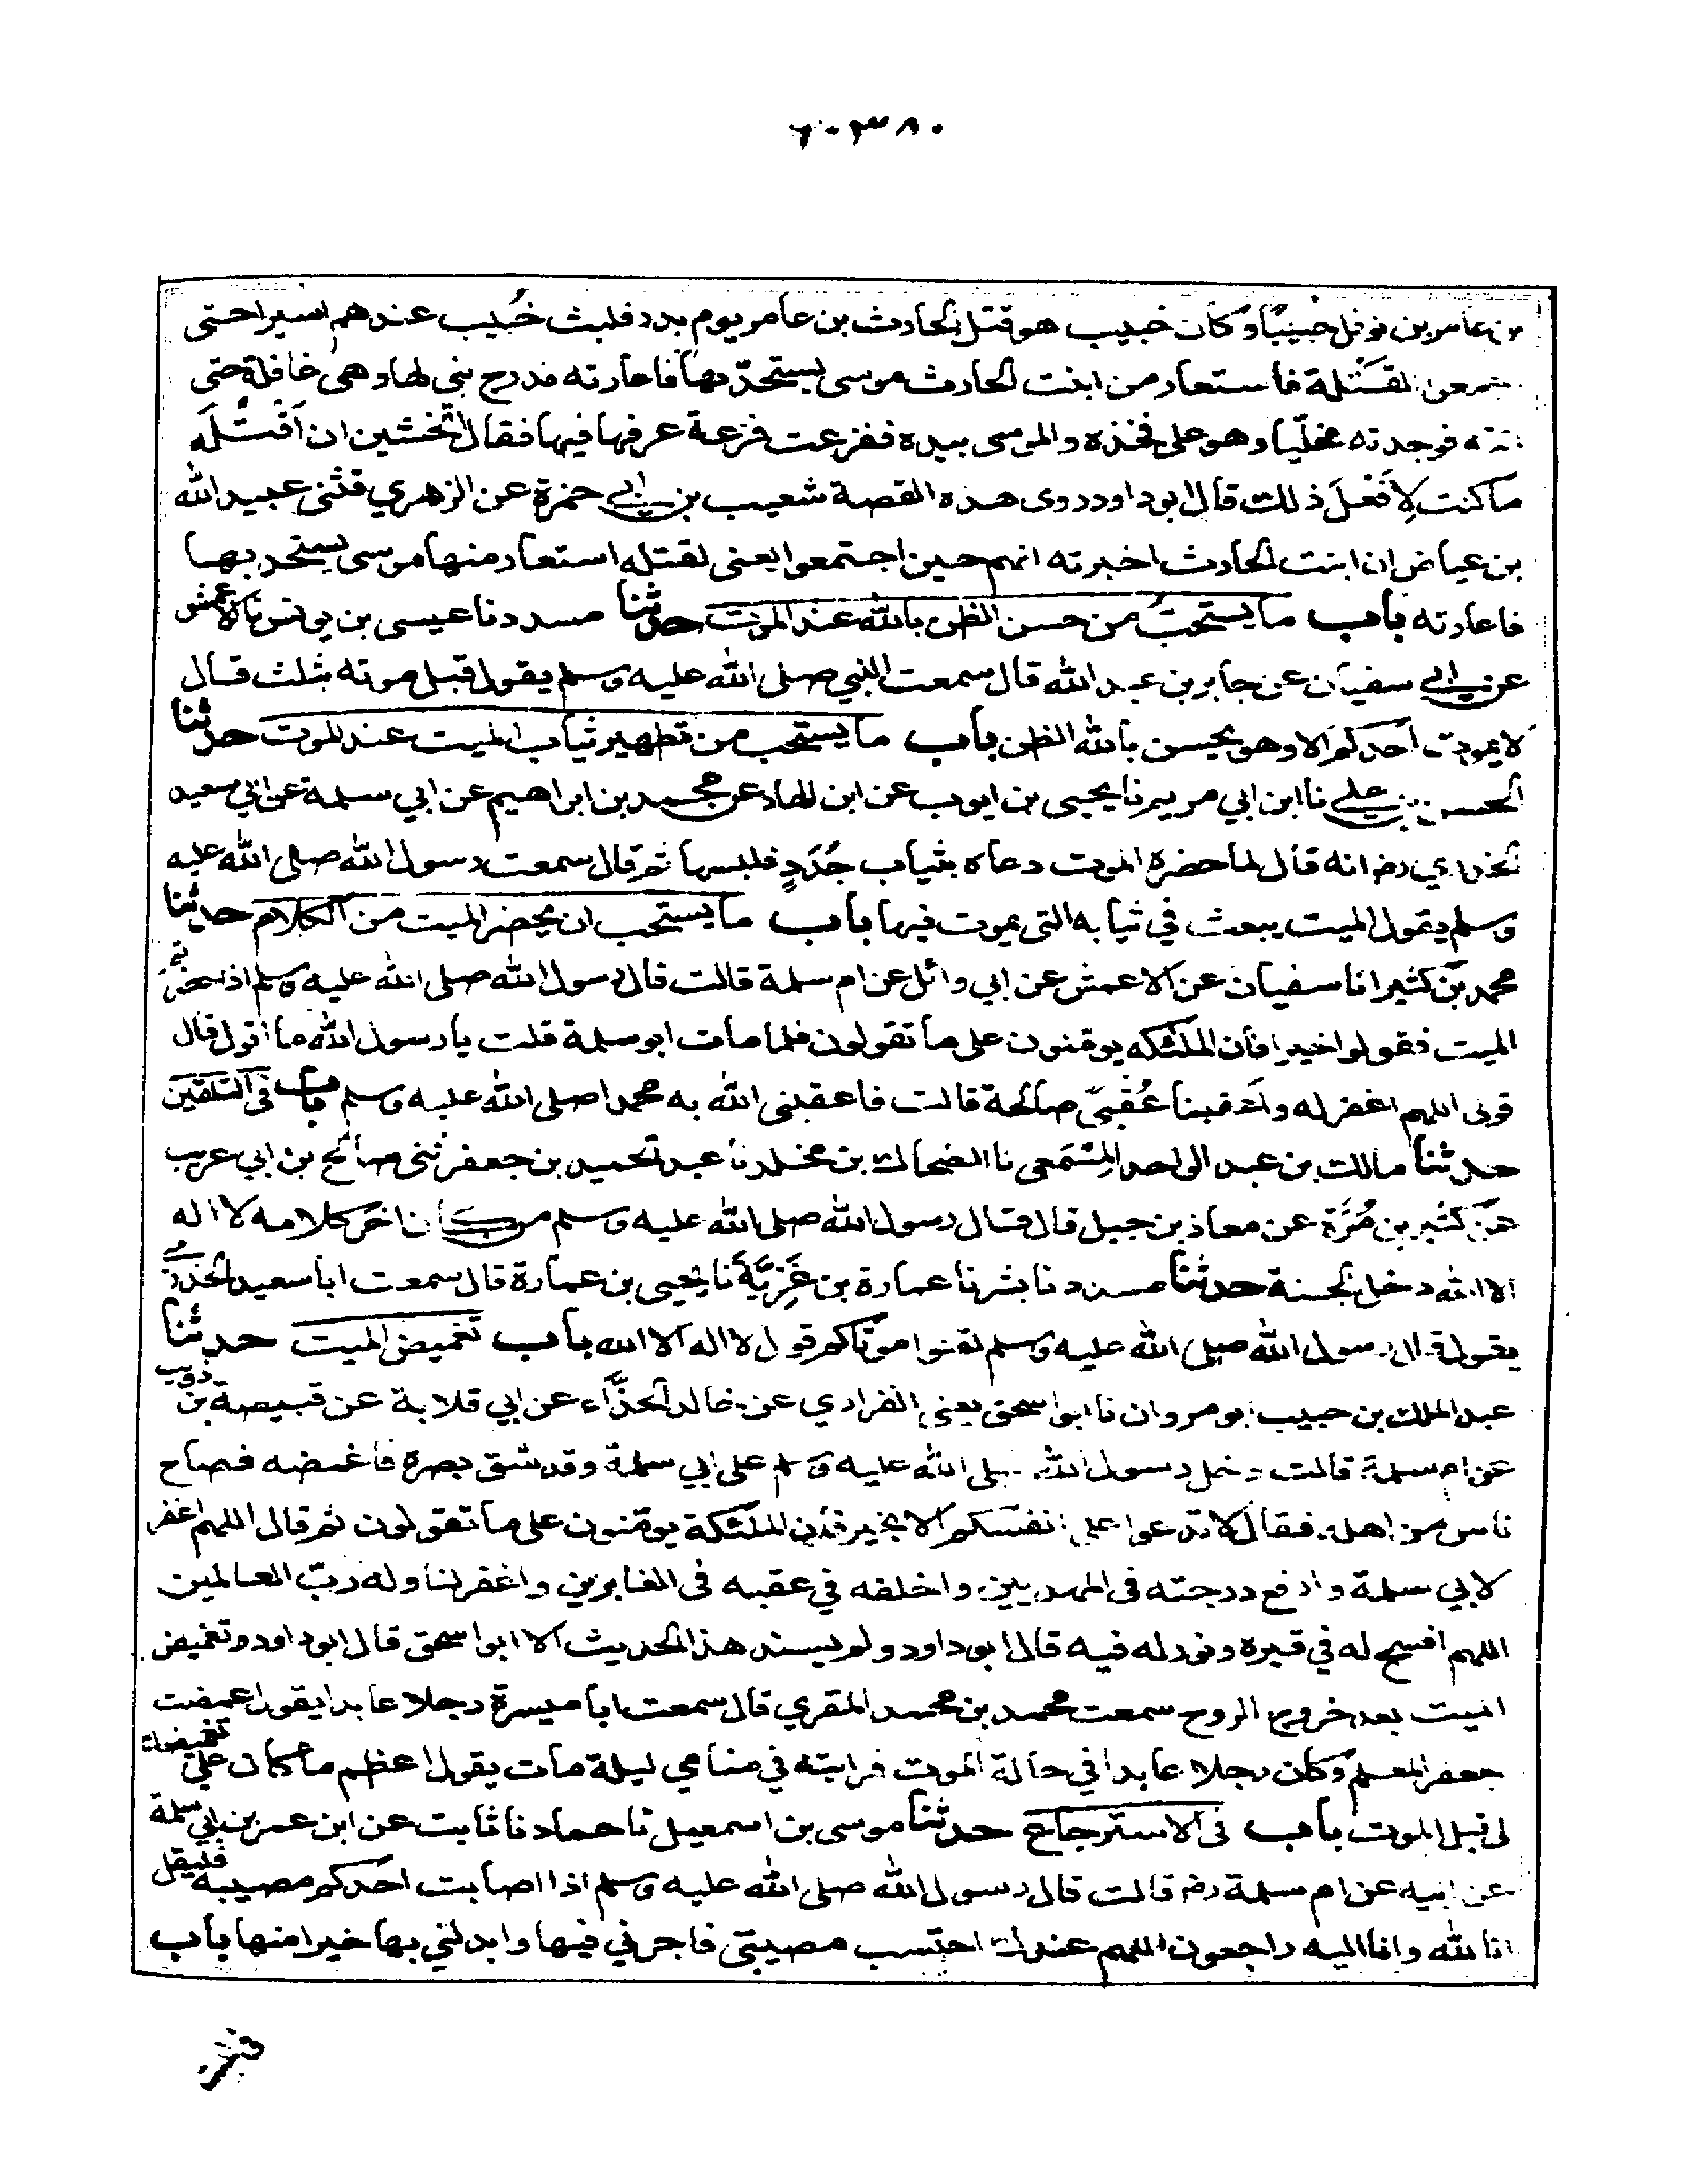 ٦٠٣٨٠
بن عامر بن نوفل خبيبًا وكان خبيب هو قتل الحارث بن عامر يوم بدر فلبث خُبيب عندهم اسيرا حتى
اجمعوا لقَتْلة فاستعار من ابنت الحارث موسى يستحدّ بها فاعارته فدرج بني لها وهي غافلة حتى
اتته فوجدته مخليًا وهو على فخذه والموسى بيده ففزعت فزعة عرفها فيها فقال اتخشين ان اَقْتُلَه
ما كنت لِاَفْعلَ ذلك قال ابوداود روى هذه القصة شعيب بن ابي حمزة عن الزهري قثنى عبيد الله
بن عياض ان ابنت الحارث اخبرته انهم حين اجتمعوا يعني لقتله استعار منها موسى يستحد بها
فاعارته باب ما يستحبُّ من حسن الظن بالله عند الموت حدثنا مسدد نا عيسى بن يونس نا الاعمش
عن ابي سفيان عن جابر بن عبد الله قال سمعت النبي صلى الله عليه وسلم يقول قبل موته بثلث قال
لا يموت احدكم الا وهو يحسن بالله الظن باب ما يستحب من تطهير ثياب الميت عند الموت حدثنا
الحسن بن علي نا ابن ابي مريم نا يحيى بن ايوب عن ابن الهاد عن محمد بن ابراهيم عن ابي سلمة عن ابي سعيد
الخدري رضه انه قال لما حضره الموت دعا ه بثياب جُدَدٍ فلبسها ثم قال سمعت رسول الله صلى الله عليه
وسلم يقول الميت يبعث في ثيابه التي يموت فيها باب ما يستحب ان يحضر الميت من الكلام حدثنا
محمد بن كثير انا سفيان عن الاعمش عن ابي وائل عن ام سلمة قالت قال رسول الله صلى الله عليه وسلم اذا حضرتم
الميت فقولوا خيرا فان الملئكه يومنون على ما تقولون فلما مات ابو سلمة قلت يا رسول الله ما اقول قال
قولي اللهم اغفر له واعقبنا عُقْبىَ صالحة قالت فاعقبني الله به محمدا صلى الله عليه وسلم باب في التلقين
حدثنا مالك بن عبد الواحد المِسْمَعي نا الضحاك بن مخلد نا عبد الحميد بن جعفر ثني صالح بن ابي عريب
عن كثير بن مُرَّة عن معاذ بن جبل قال قال رسول الله صلى الله عليه وسلم من كان اخر كلامه لا اله
الا الله دخل الجنة حدثنا مسدد نا بشر نا عمارة بن غَزِيَّة نا يحيى بن عمارة قال سمعت ابا سعيد الخدري
يقول قال رسول الله صلى الله عليه وسلم لقنوا موتاكم قول لا اله الا الله باب تغميض الميت حدثنا
عبد الملك بن حبيب ابو مروان نا ابو اسحق يعني الفزاري عن خالد الحذَّاء عن ابي قلابة عن قبيصة بن ذويب
عن ام سلمة قالت دخل رسول الله صلى الله عليه وسلم على ابي سلمة وقد شق بصره فاغمضه فصاح
ناس من اهله فقال لا تدعوا على انفسكم الا بخير فان الملئكة يومنون على ما تقولون ثم قال اللهم اغفر
لابي سلمة وارفع درجته في المهديين واخلفه في عقبه في الغابرين واغفر لنا وله ربّ العالمين
اللهم افسح له في قبره ونور له فيه قال ابوداود ولم يسند هذا الحديث الا ابو اسحق قال ابوداود وتغميض
الميت بعد خروج الروح سمعت محمد بن محمد المقري قال سمعت ابا ميسرة رجلا عابدا يقول غمضت
جعفر المعلم وكان رجلا عابدا في حالة الموت فرايته في منامي ليلة مات يقول اعظم ما كان علي تغميضك
لي قبل الموت باب في الاسترجاع حدثنا موسى بن اسمعيل نا حماد نا ثابت عن ابن عمر بن ابي سلمة
عن ابيه عن ام سلمة رضه قالت قال رسول الله صلى الله عليه وسلم اذا اصابت احدكم مصيبه فليقل
انا لله وانا اليه راجعون اللهم عندك احتسب مصيبتي فاجرني فيها وابدلني بها خيرا منها باب